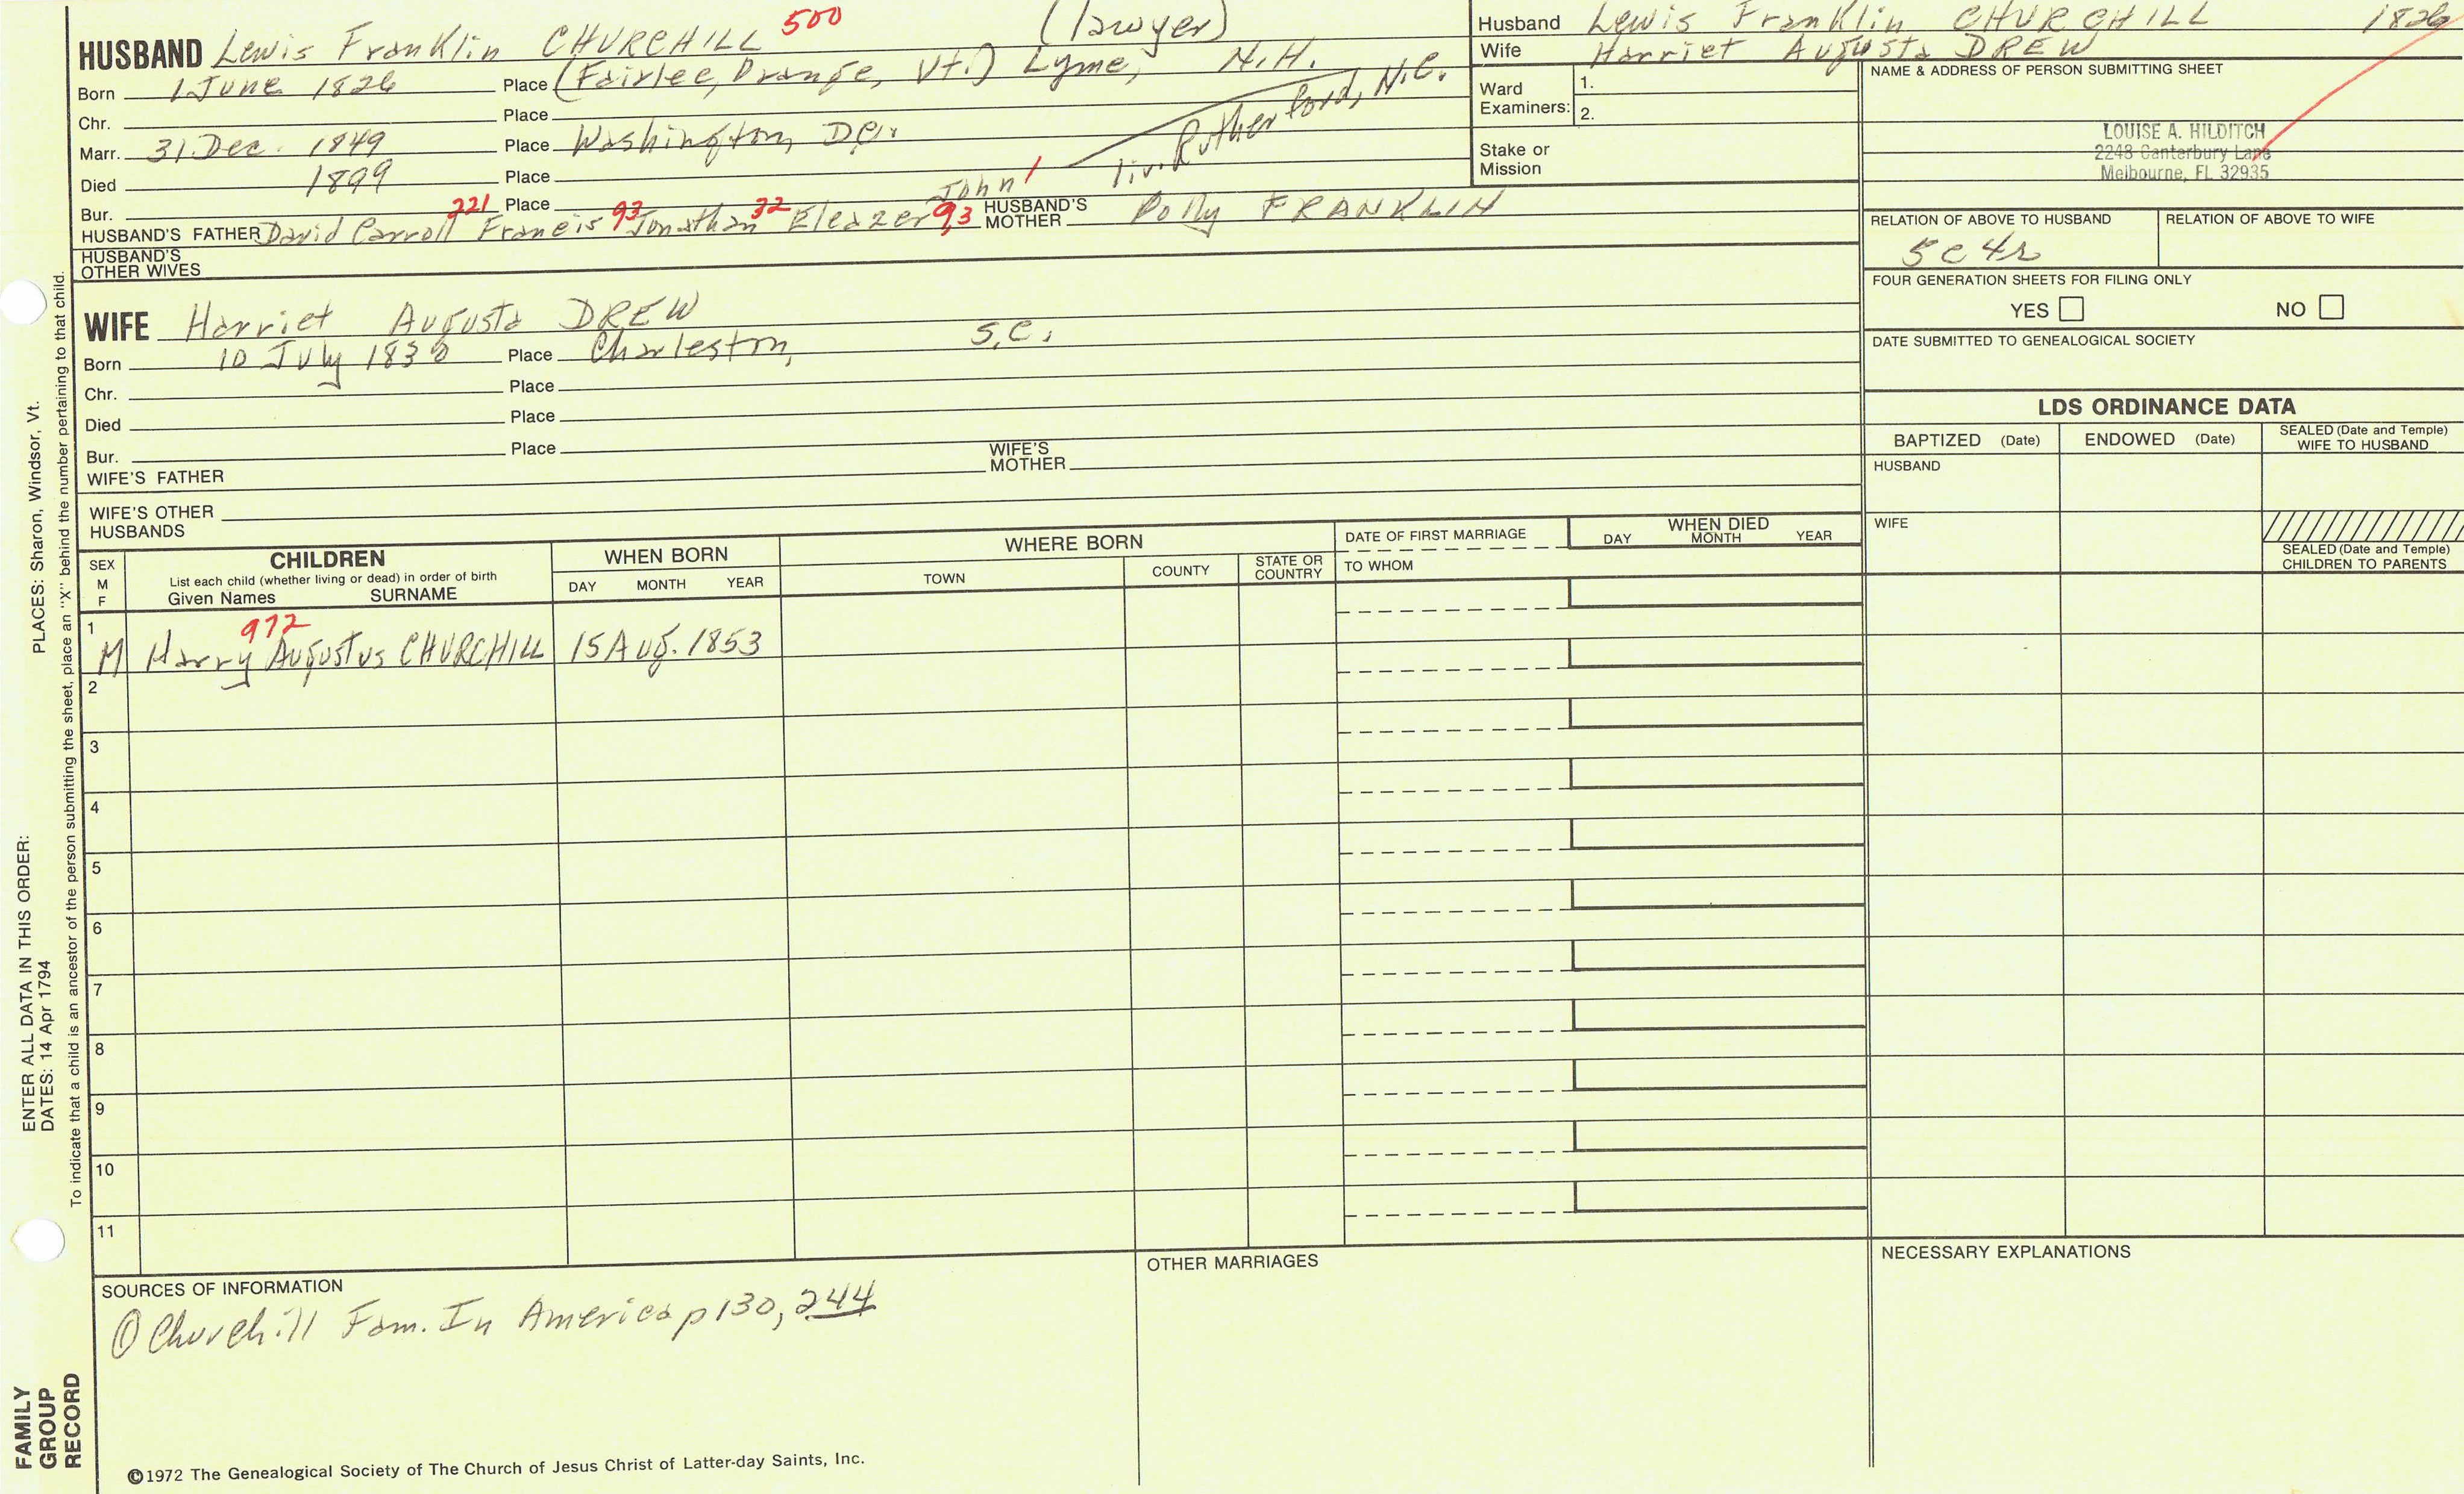 HUSBAND Lewis Franklin CHURCHILL 500 (lawyer)
Born 1 June 1826 Place (Fairlee, Orange, Vt.) Lyme, N.H.
Chr. Place
liv. Rutherford, N.C.
Marr. 31 Dec. 1849 Place Washington, D.C.
Died 1899 Place
Bur. Place
HUSBAND'S FATHER David Carroll 221 Francis 93 Jonathan 32 Eleazer 9,3 John 1 HUSBAND'S MOTHER Polly FRANKLIN
HUSBAND'S OTHER WIVES
WIFE Harriet Augusta DREW
Born 10 July Place Charleston, S.C.
Chr. Place
Died Place
Bur. Place
WIFE'S FATHER WIFE'S MOTHER
WIFE'S OTHER HUSBANDS
Husband Lewis Franklin CHURCHILL 1826
Wife Harriet Augusta DREW
Ward Examiners: 1.
2.
Stake or Mission
NAME & ADDRESS OF PERSON SUBMITTING SHEET
LOUISE A. HILDITCH
2248 Canterbury Lane
Melbourne, FL 32935
RELATION OF ABOVE TO HUSBAND RELATION OF ABOVE TO WIFE
5c4r
FOUR GENERATION SHEETS FOR FILING ONLY
YES NO
DATE SUBMITTED TO GENEALOGICAL SOCIETY
LDS ORDINANCE DATA
BAPTIZED (Date) ENDOWED (Date) SEALED (Date and Temple) WIFE TO HUSBAND
HUSBAND
WIFE
SEALED (Date and Temple) CHILDREN TO PARENTS
SEX M F
CHILDREN
List each child (whether living or dead) in order of birth
Given Names SURNAME
WHEN BORN
DAY MONTH YEAR
WHERE BORN
TOWN COUNTY STATE OR COUNTRY
DATE OF FIRST MARRIAGE
TO WHOM
WHEN DIED
DAY MONTH YEAR
1 972
M Harry Augustus CHURCHILL 15 Aug. 1853
2
3
4
5
6
7
8
9
10
11
SOURCES OF INFORMATION
① Churchill Fam. In America p 130, 244
OTHER MARRIAGES
NECESSARY EXPLANATIONS
©1972 The Genealogical Society of The Church of Jesus Christ of Latter-day Saints, Inc.
FAMILY GROUP RECORD
ENTER ALL DATA IN THIS ORDER:
DATES: 14 Apr 1794
PLACES: Sharon, Windsor, Vt.
To indicate that a child is an ancestor of the person submitting the sheet, place an "X" behind the number pertaining to that child.